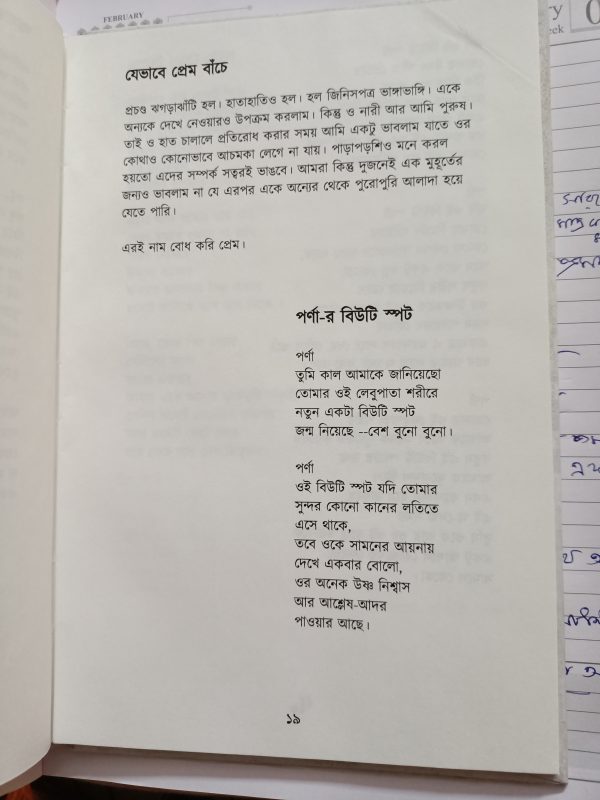 FEBRUARY
যেভাবে প্রেম বাঁচে
প্রচণ্ড ঝগড়াঝাঁটি হল। হাতাহাতিও হল। হল জিনিসপত্র ভাঙ্গাভাঙ্গি। একে
অন্যকে দেখে নেওয়ারও উপক্রম করলাম। কিন্তু ও নারী আর আমি পুরুষ।
তাই ও হাত চালালে প্রতিরোধ করার সময় আমি একটু ভাবলাম যাতে ওর
কোথাও কোনোভাবে আচমকা লেগে না যায়। পাড়াপড়শিও মনে করল
হয়তো এদের সম্পর্ক সত্বরই ভাঙবে। আমরা কিন্তু দুজনেই এক মুহূর্তের
জন্যও ভাবলাম না যে এরপর একে অন্যের থেকে পুরোপুরি আলাদা হয়ে
যেতে পারি।
এরই নাম বোধ করি প্রেম।
পর্ণা-র বিউটি স্পট
পর্ণা
তুমি কাল আমাকে জানিয়েছো
তোমার ওই লেবুপাতা শরীরে
নতুন একটা বিউটি স্পট
জন্ম নিয়েছে --বেশ বুনো বুনো।
পর্ণা
ওই বিউটি স্পট যদি তোমার
সুন্দর কোনো কানের লতিতে
এসে থাকে,
তবে ওকে সামনের আয়নায়
দেখে একবার বোলো,
ওর অনেক উষ্ণ নিশ্বাস
আর আশ্লেষ-আদর
পাওয়ার আছে।
১৯